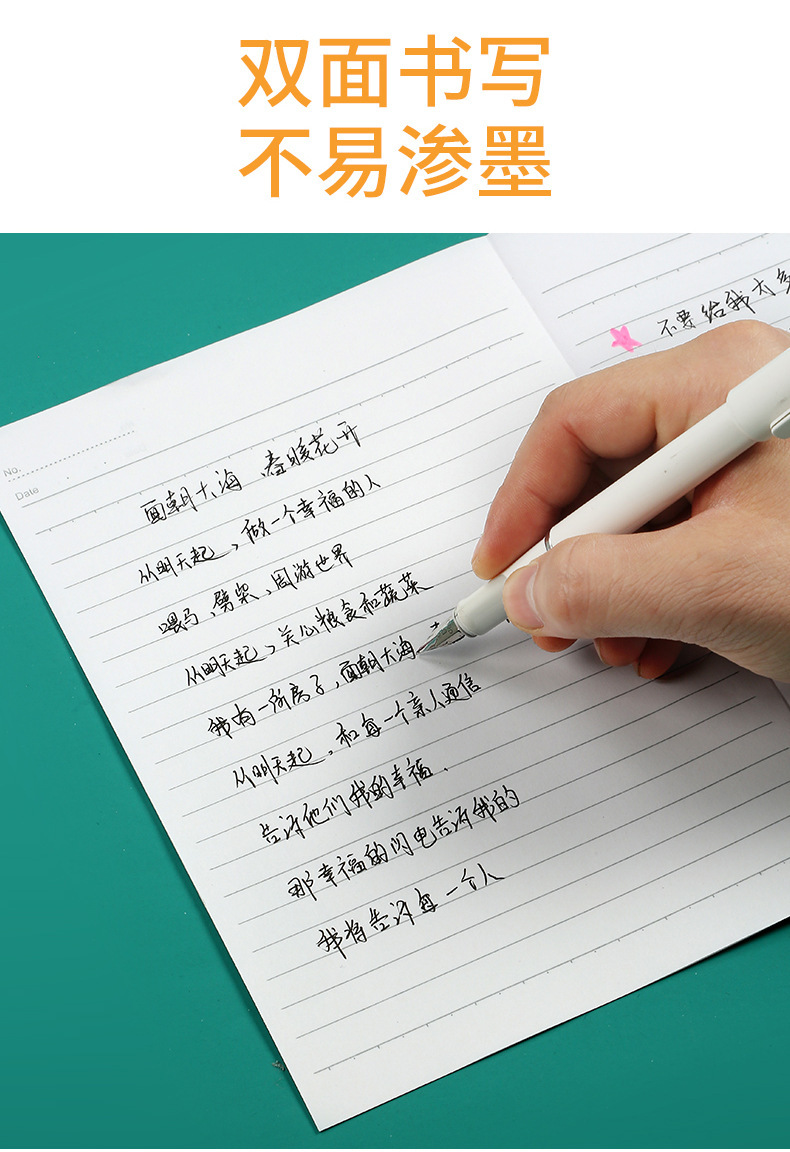 双面书写
不易渗墨
No.
Date
面朝大海 春暖花开
从明天起，做一个幸福的人
喂马、劈柴、周游世界
从明天起，关心粮食和蔬菜
我有一所房子，面朝大海
从明天起，和每一个亲人通信
告诉他们我的幸福.
那幸福的闪电告诉我的
我将告诉每一个人
不要给我太多